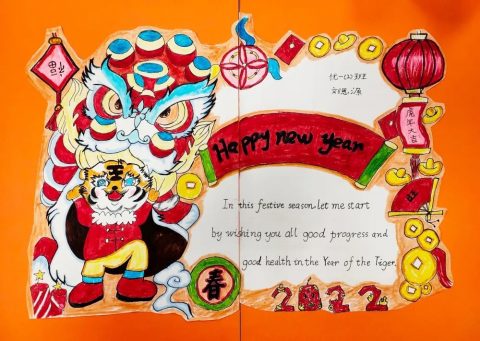 福
虎年大吉
Happy new Year
王
In this festive season, let me start
by wishing you all good progress and
good health in the Year of the Tiger.
春
2022